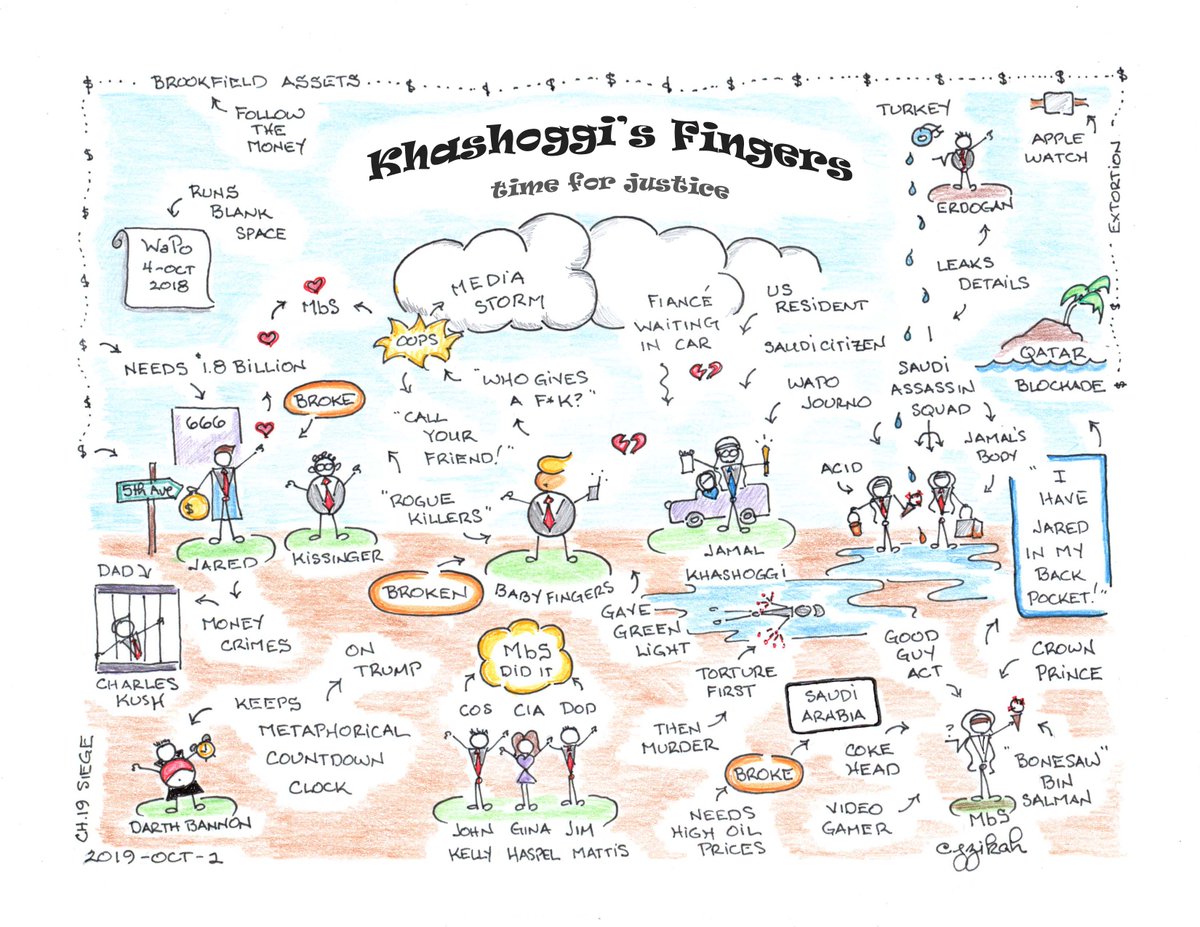 BROOKFIELD ASSETS
FOLLOW
THE
MONEY
Khashoggi's Fingers
time for justice
TURKEY
APPLE
WATCH
EXTORTION
ERDOGAN
RUNS
BLANK
SPACE
WaPo
4-OCT
2018
LEAKS
DETAILS
MbS
MEDIA
STORM
OOPS
FIANCÉ
WAITING
IN CAR
US
RESIDENT
SAUDI CITIZEN
WAPO
JOURNO
SAUDI
ASSASSIN
SQUAD
QATAR
BLOCKADE
NEEDS $1.8 BILLION
BROKE
"WHO GIVES
A F*K?"
"CALL
YOUR
FRIEND!"
666
5th Ave
$
JARED
KISSINGER
"ROGUE
KILLERS"
BROKEN
BABY FINGERS
JAMAL
KHASHOGGI
ACID
JAMAL'S
BODY
"I
HAVE
JARED
IN MY
BACK
POCKET!"
DAD
CHARLES
KUSH
MONEY
CRIMES
GAVE
GREEN
LIGHT
TORTURE
FIRST
THEN
MURDER
GOOD
GUY
ACT
CROWN
PRINCE
ON
TRUMP
KEEPS
METAPHORICAL
COUNTDOWN
CLOCK
DARTH BANNON
MbS
DID IT
COS CIA DOD
JOHN GINA JIM
KELLY HASPEL MATTIS
SAUDI
ARABIA
BROKE
NEEDS
HIGH OIL
PRICES
COKE
HEAD
VIDEO
GAMER
?
"BONESAW"
BIN
SALMAN
MbS
cgzikah
CH.19 SIEGE
2019-OCT-2